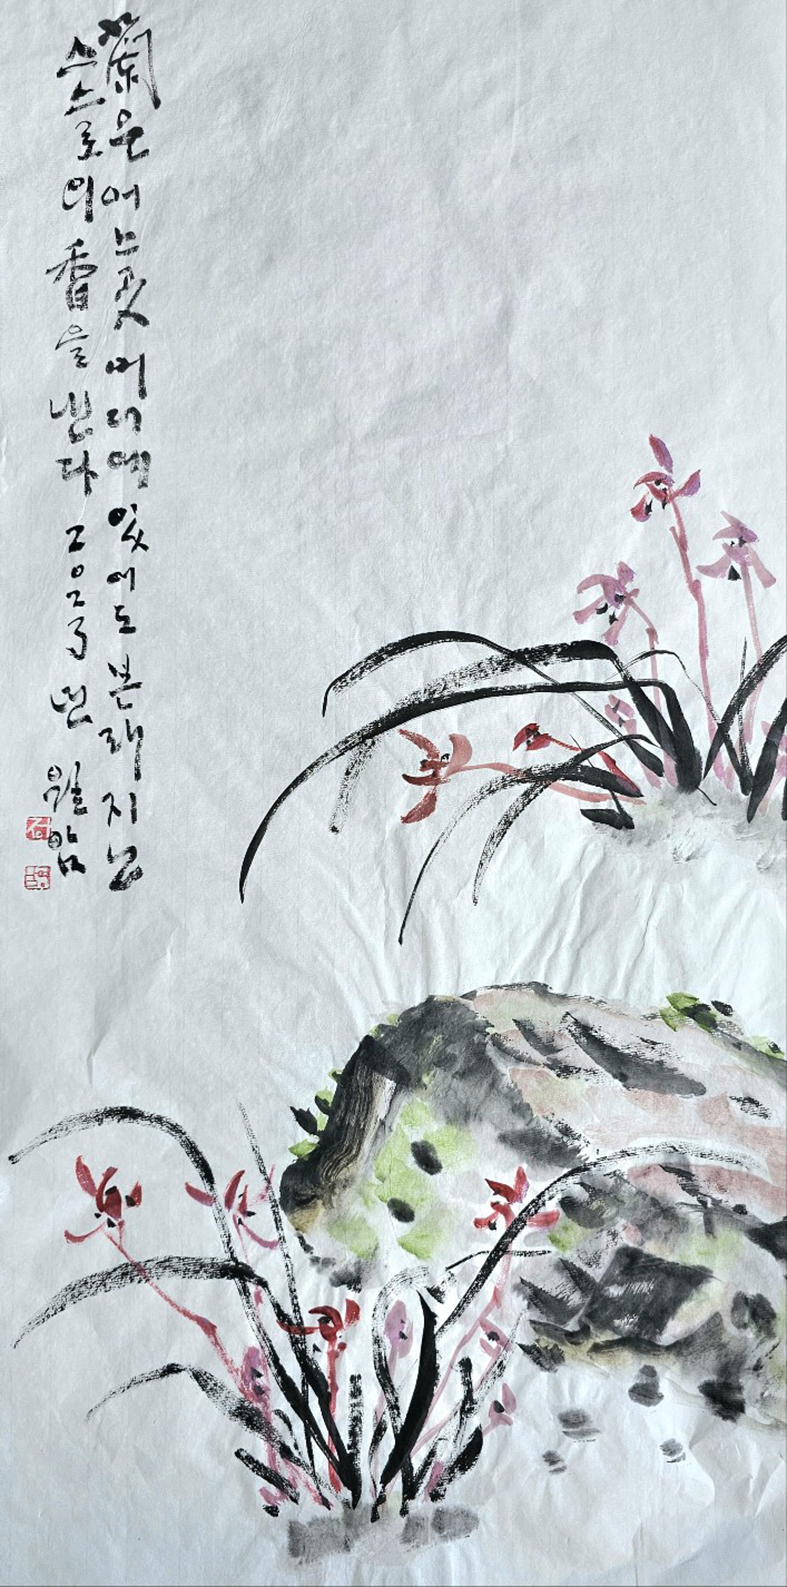 蘭은 어느 곳 어디에 있어도 본래 지닌
스스로의 香을 낸다 2023년 월암